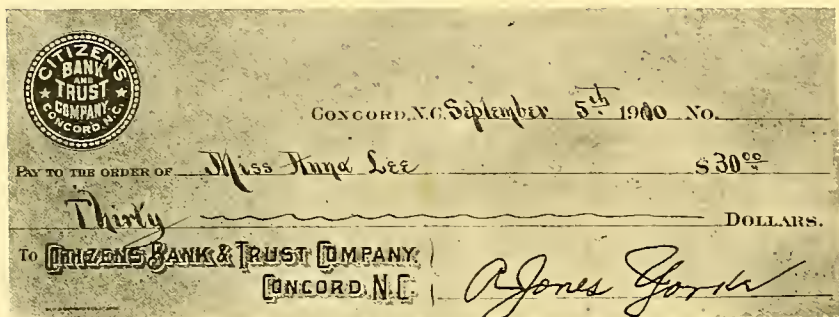 CITIZENS
BANK
AND
TRUST
COMPANY
CONCORD, N.C.
CONCORD, N.C. September 5th 1910 No.
PAY TO THE ORDER OF Miss Anna Lee $30 00
Thirty DOLLARS.
TO CITIZENS BANK & TRUST COMPANY
CONCORD, N.C.
A Jones Yorke